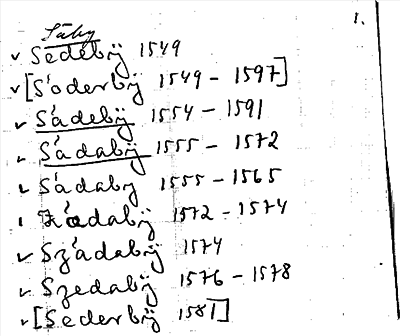 1.
Sáhy
✓ Sedebÿ 1549
✓ [Soderbÿ 1549 – 1597]
✓ Sádebÿ 1554 – 1591
✓ Sádabÿ 1555 – 1572
✓ Sádabÿ 1555 – 1565
Zádabÿ 1572 – 1574
✓ Szádabÿ 1574
✓ Szedabÿ 1576 – 1578
✓ [Sederbÿ 1581]